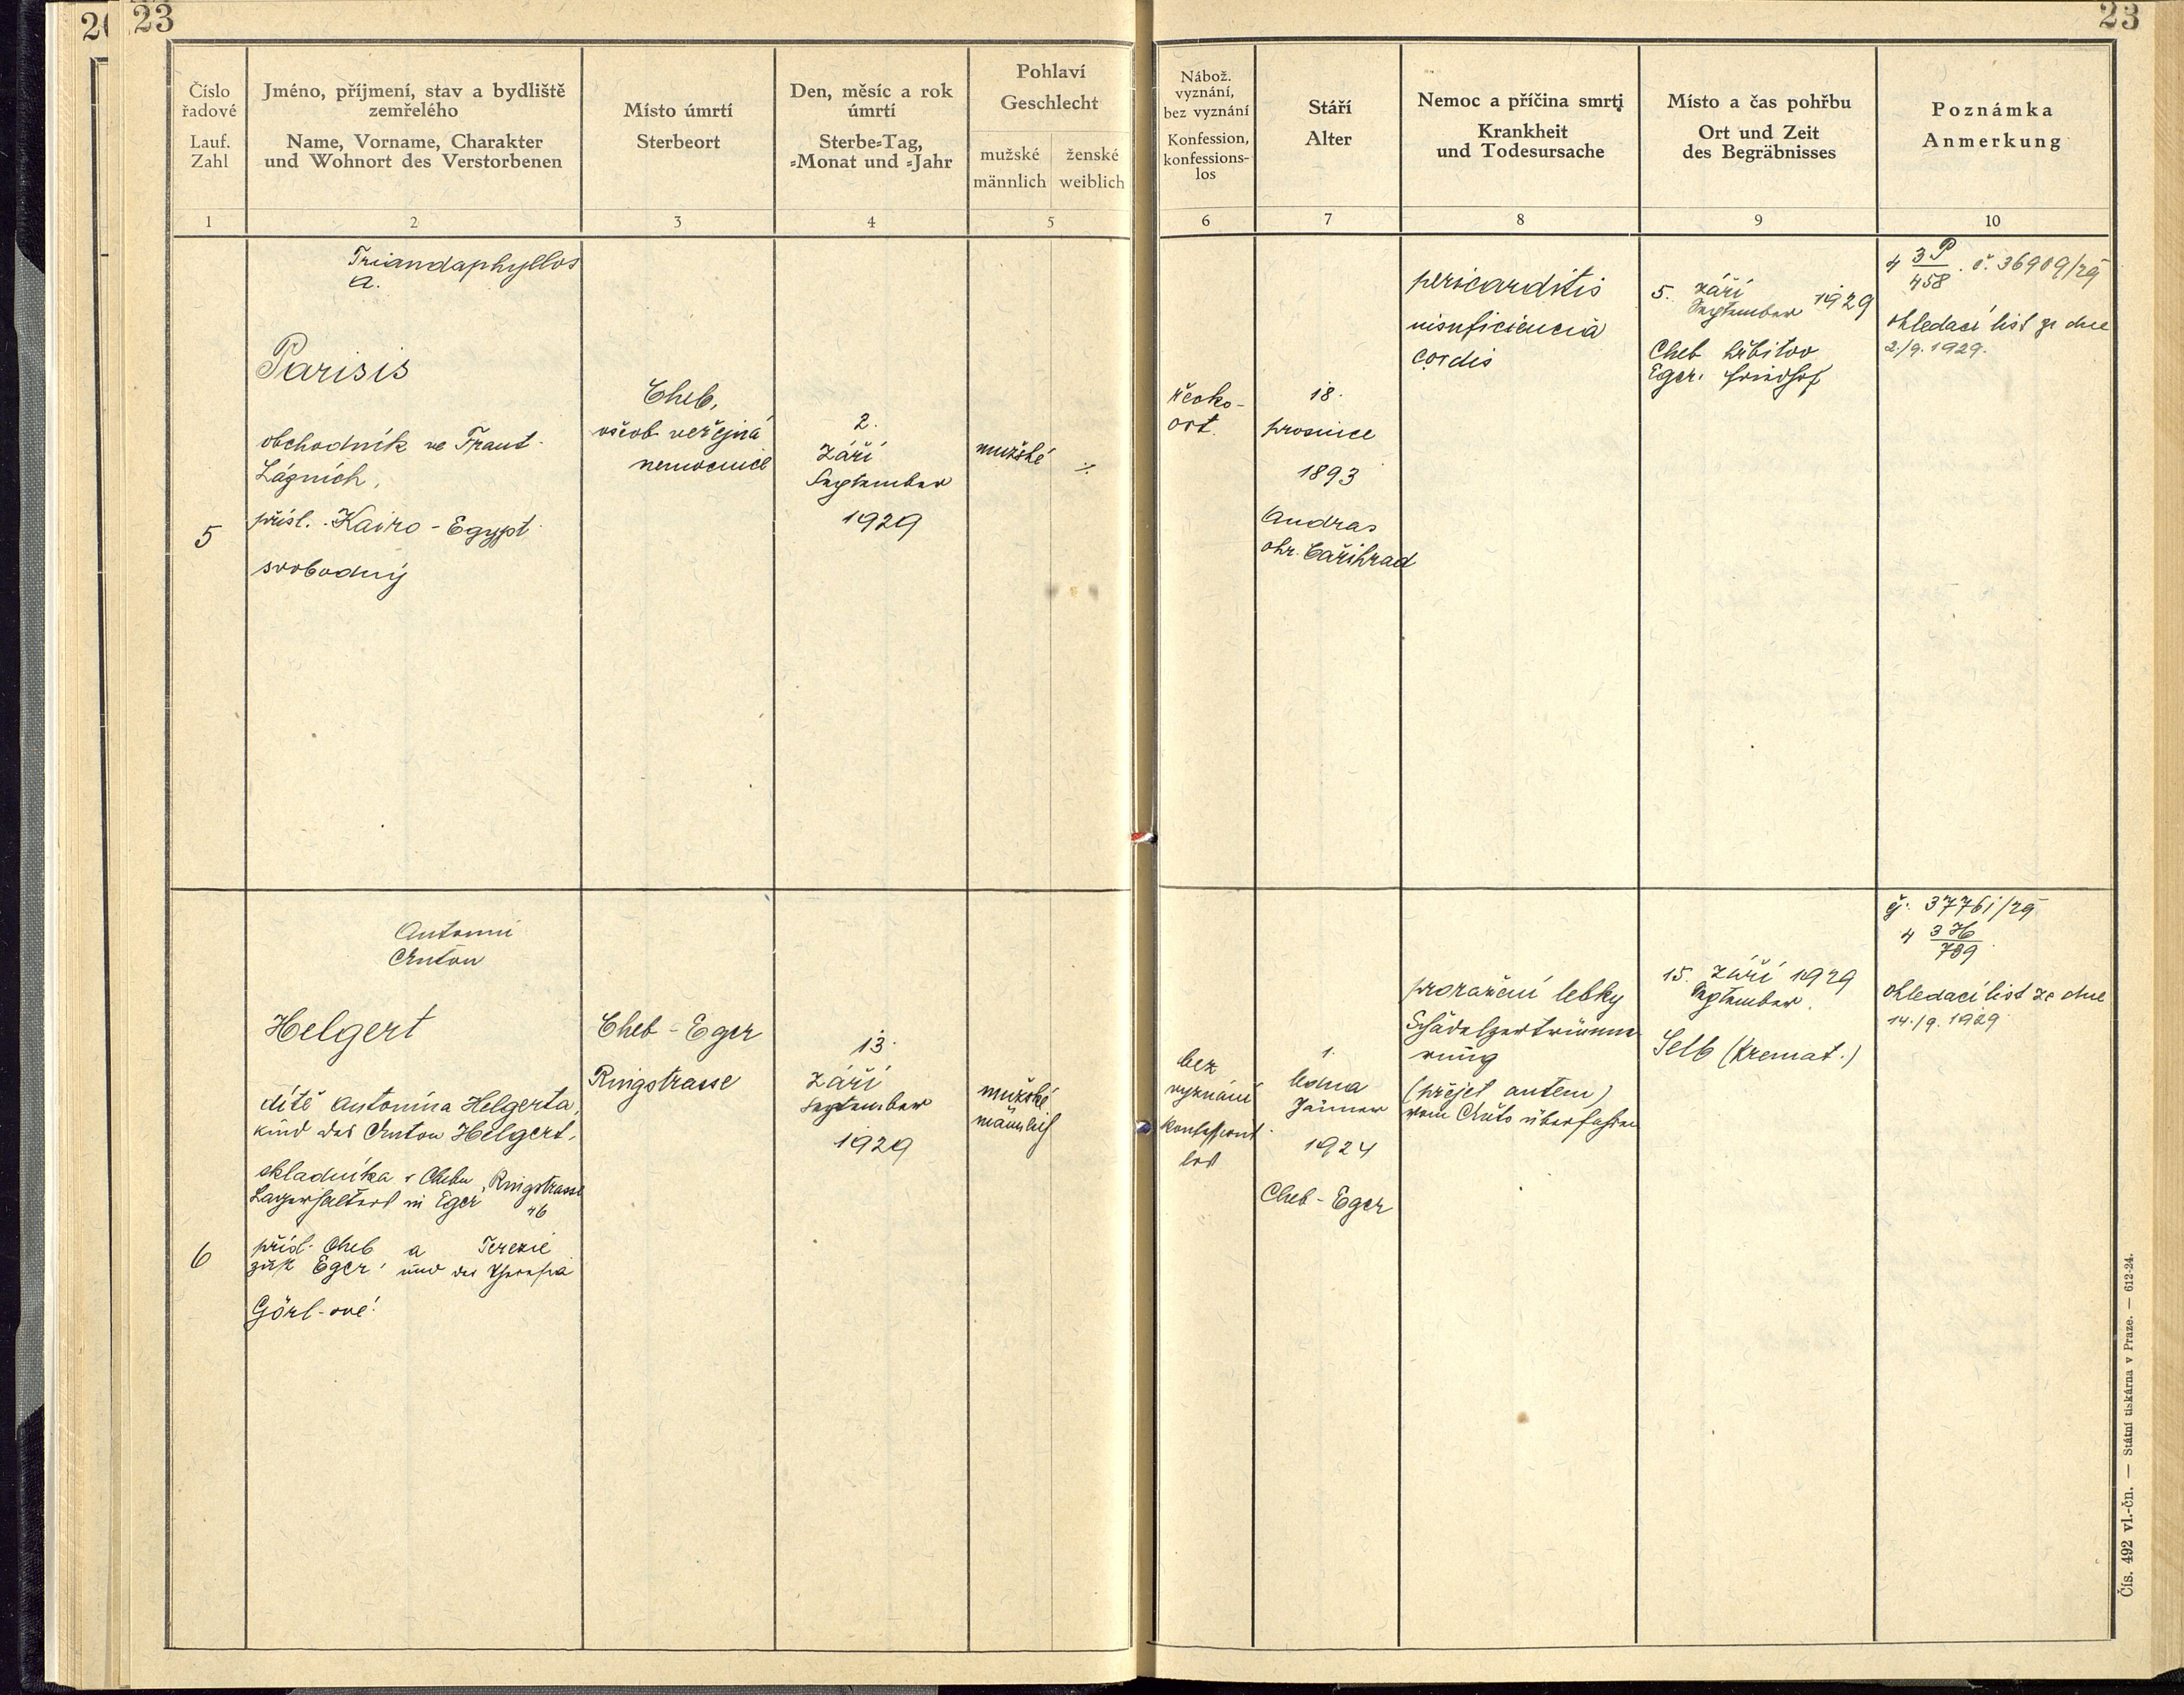 23
23
Číslo
řadové
Lauf.
Zahl
Jméno, příjmení, stav a bydliště
zemřelého
Name, Vorname, Charakter
und Wohnort des Verstorbenen
Místo úmrtí
Sterbeort
Den, měsíc a rok
úmrtí
Sterbe-Tag,
-Monat und -Jahr
Pohlaví
Geschlecht
mužské
männlich
ženské
weiblich
Nábož.
vyznání,
bez vyznání
Konfession,
konfessions-
los
Stáří
Alter
Nemoc a příčina smrti
Krankheit
und Todesursache
Místo a čas pohřbu
Ort und Zeit
des Begräbnisses
Poznámka
Anmerkung
1
2
3
4
5
6
7
8
9
10
5
Triandaphyllos
A.
Parisis
obchodník ve Frant.
Lázních,
přísl. Kairo - Egypt
svobodný
Cheb,
všeob. veřejná
nemocnice
2.
Září
September
1929
mužské
řecko-
ort.
18.
prosince
1893
Andras
okr. Cařihrad
pericarditis
cordis
5. září
September 1929
Cheb hřbitov
Eger. Friedhof
4 3P/458 . č. 36909/29
ohledací list ze dne
2./9. 1929.
6
Antonín
Anton
Helgert
dítě Antonína Helgerta,
Kind des Anton Helgert,
skladníka v Chebu, Ringstrasse
Lagerhalters in Eger 46
přísl. Cheb a Terezie
zust. Eger, und der Theresia
Görl-ové.
Cheb - Eger
Ringstrasse
13.
Září
September
1929
mužské
männlich
bez
vyznání
konfessions-
los
1.
ledna
Jänner
1924
Cheb - Eger
proražení lebky
Schädelzertrümme
rung
(přejet autem)
vom Auto überfahren
15. Září 1929
September.
Selb (Kremat.)
čj. 37761/29
4 3H/789
ohledací list ze dne
14./9. 1929
Čís. 492 vl.-čn. — Státní tiskárna v Praze. — 612-24.